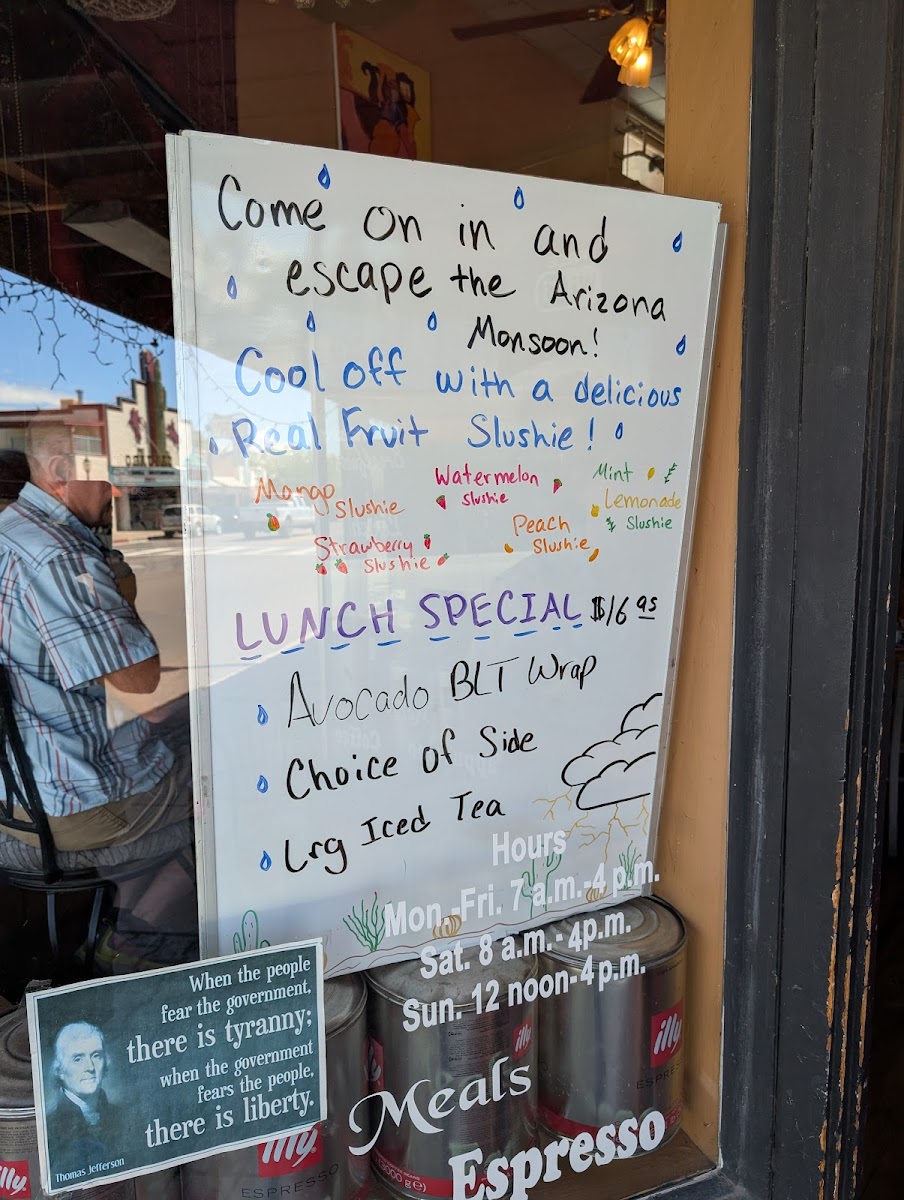 Come on in and
escape the Arizona
Monsoon!
Cool off with a delicious
Real Fruit Slushie!
Mango
Slushie
Watermelon
Slushie
Mint
Lemonade
Slushie
Strawberry
Slushie
Peach
Slushie
LUNCH SPECIAL $16 95
Avocado BLT Wrap
Choice Of Side
Lrg Iced Tea
Hours
Mon.-Fri. 7 a.m.-4 p.m.
Sat. 8 a.m.- 4p.m.
Sun. 12 noon-4 p.m.
Meals
Espresso
When the people
fear the government,
there is tyranny;
when the government
fears the people,
there is liberty.
Thomas Jefferson
illy
illy
ESPRESSO
illy
ESPRESSO
illy
(3000 g e)